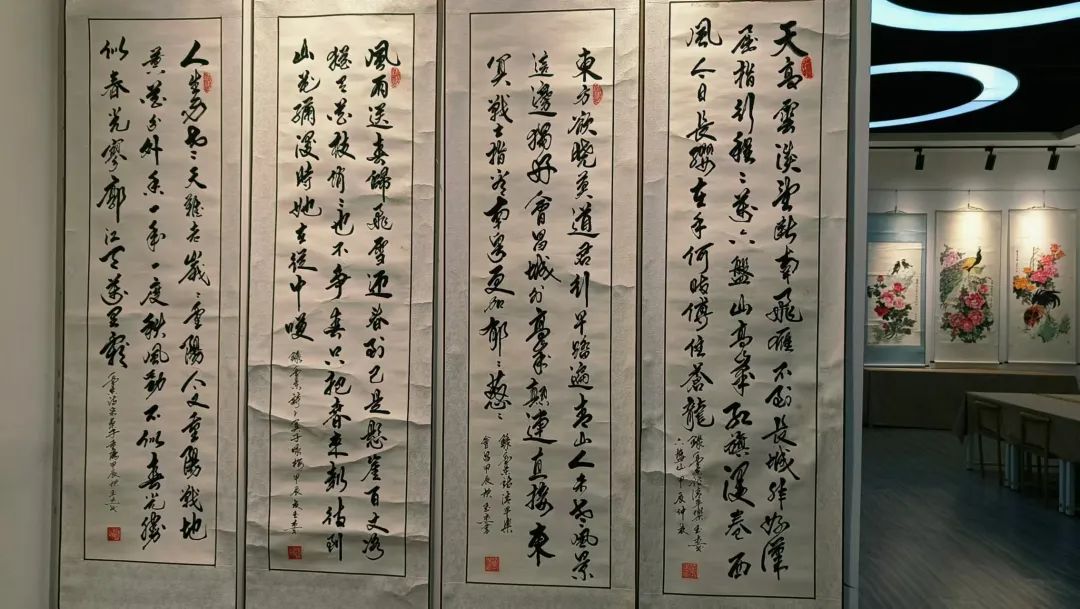 天高雲淡望断南飛雁不到長城非好漢
屈指行程二萬六盤山高峯红旗漫卷西
風今日長纓在手何時縛住蒼龍
錄毛主席詩清平樂
六盤山甲辰仲秋
東方欲晓莫道君行早踏遍青山人未老風景
這邊獨好會昌城外高峯顛連直接東
溟戰士指看南粤更加郁〻葱〻
錄毛主席詩清平樂
會昌甲辰秋
風雨送春歸飛雪迎春到已是懸崖百丈冰
猶有花枝俏〻也不争春只把春來報待到
山花爛漫時她在叢中笑
錄毛主席詩卜算子咏梅甲辰
人生易老天難老歲〻重陽今又重陽戰地
黄花分外香一年一度秋風勁不似春光勝
似春光寥廓江天萬里霜
采桑子重陽甲辰秋